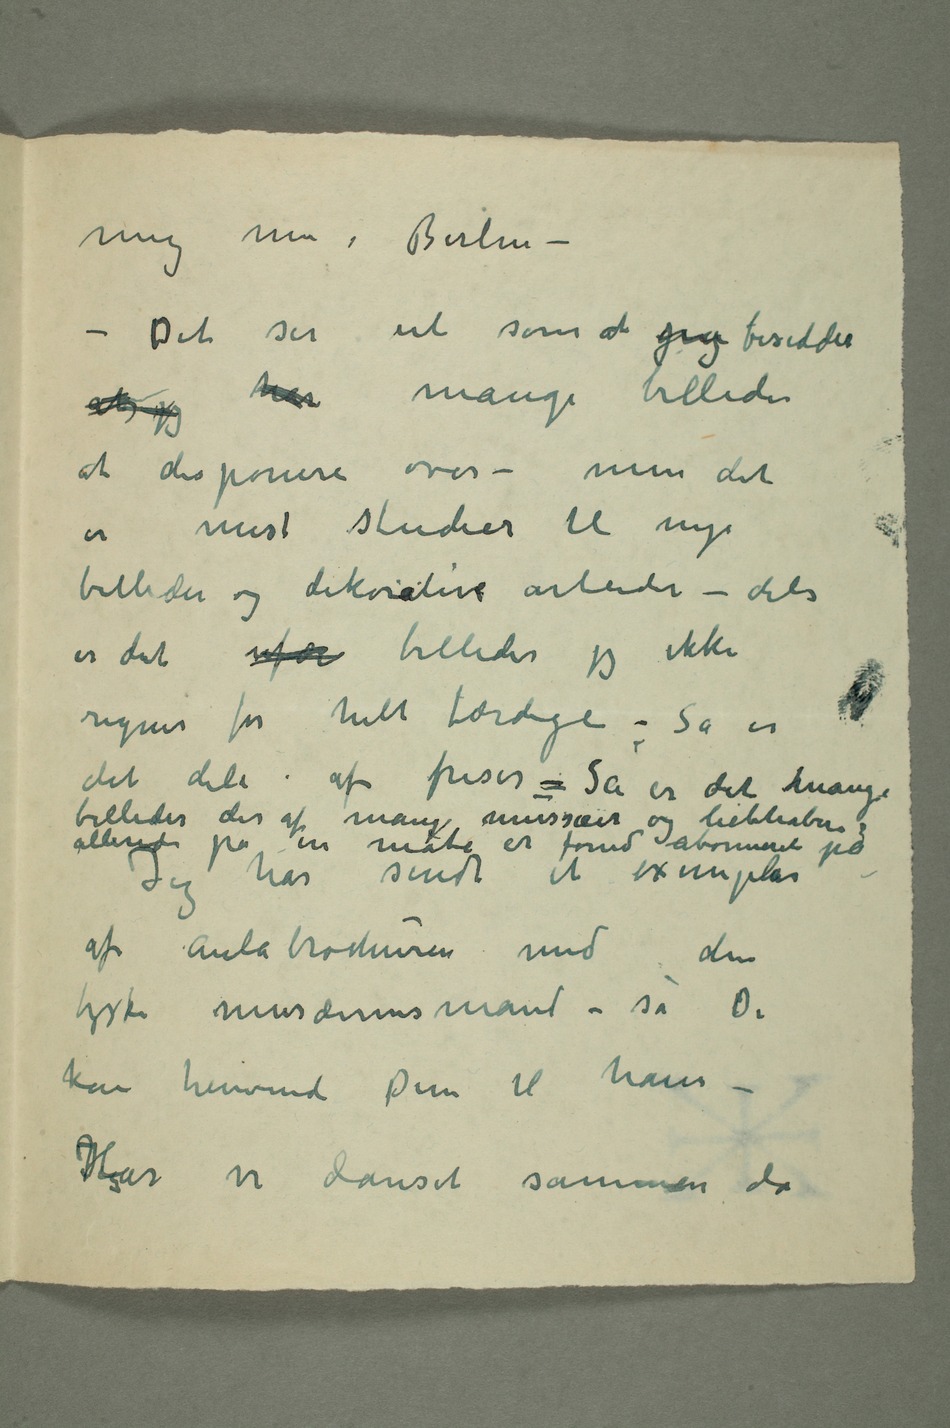 mig nu i Berlin –
– Det ser ut som at jeg besidder
at jeg har mange billeder
at disponere over – men det
er mest studier til nye
billeder og dekorative arbeider – dels
er det ufær billeder jeg ikke
regner for helt færdige – Så er
det dele af friser = Så er det mange
billeder der af mange musæer og liebhabere
allerede på en måte er forud abonneret på
Jeg har sendt et exemplar –
af Aulabrochuren med den
tyske musæumsmand – så De
kan henvend Dem til ham –
Har vi danset sammen da